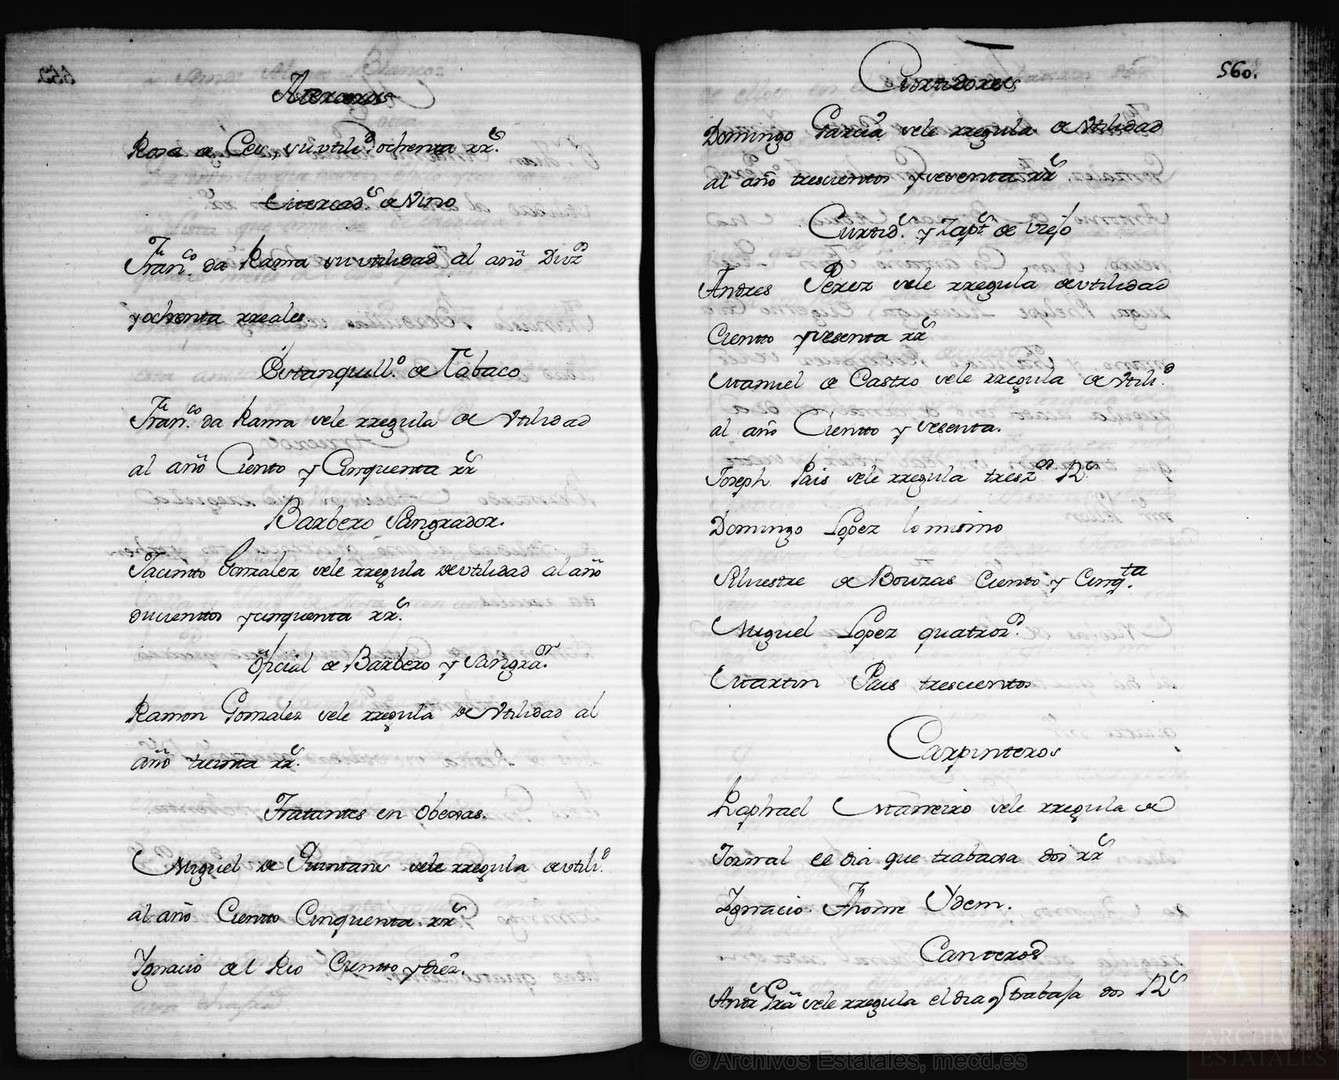 Rosa de Ceo, su utilid.ᵈ ochenta rr.ˢ
Mercad.ˢ de Vino
Fran.ᶜᵒ da Rama su utilidad al año Duz.ᵒˢ
y ochenta rreales
Estanquill.ᵒ de Tabaco
Fran.ᶜᵒ da Rama sele rregula de Utilidad
al año Ciento y Cinquenta rr.ˢ
Barbero Sangrador.
Jacinto Gonzalez sele rregula de utilidad al año
ducientos y cinquenta rr.ˢ
Oficial de Barbero y Sangra.ᵒʳ
Ramon Gonzalez sele rregula de Utilidad al
año treinta rr.ˢ
Tratantes en Obejas.
Miguel de Quintans sele rregula de utili.ᵈ
al año Ciento Cinquenta rr.ˢ
Ignacio del Rio Ciento y diez.
560.
Curtidores
Domingo Garcia sele rregula de Utilidad
al año trescientos y sesenta rr.ˢ
Curtid.ʳ y Zapt.ʳ de Viejo
Andres Perez sele rregula de utilidad
Ciento y sesenta rr.ˢ
Manuel de Castro sele rregula de Utili.ᵈ
al año Ciento y sesenta.
Joseph Pais sele rregula tresz.ᵒˢ R.ˢ
Domingo Lopez lo mismo
Silvestre de Bouzas Ciento y Cinq.ᵗᵃ
Miguel Lopez quatroz.ˢ
Martin Pais trescientos
Carpinteros
Raphael Marreiro sele rregula de
Jornal el dia que trabaja dos rr.ˢ
Ignacio Thome Ydem.
Canteros
sele rregula el dia q trabaja dos R.ˢ
© Archivos Estatales, mecd.es
ARCHIVOS
ESTATALES